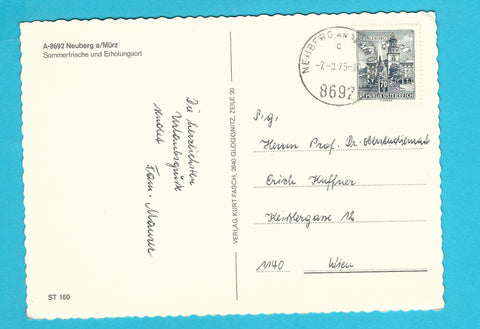 A-8692 Neuberg a/Mürz
Sommerfrische und Erholungsort
Die herzlichsten
Urlaubsgrüße
sendet
Fam. Maurer
ST 160
VERLAG KURT FASCH, 2640 GLOGGNITZ, ZEILE 20
NEUBERG AN
c
8692
REPUBLIK ÖSTERREICH
Herrn Prof. Dr. Oberstudienrat
Erich Kuffner
1140 Wien